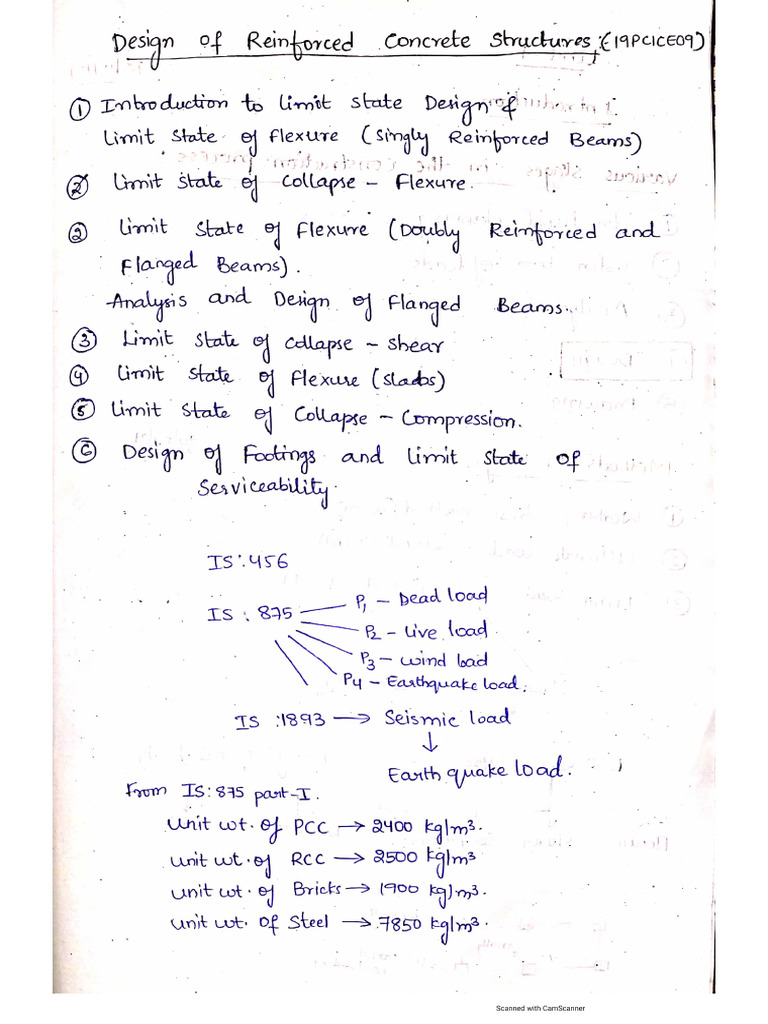 Design of Reinforced Concrete Structures:(19PC1CE09)
① Introduction to limit state Design &
Limit State of flexure (Singly Reinforced Beams)
② Limit State of Collapse - Flexure.
② Limit State of Flexure (Doubly Reinforced and
Flanged Beams).
Analysis and Design of Flanged Beams.
③ Limit State of Collapse - Shear
④ Limit State of Flexure (Slabs)
⑤ Limit State of Collapse - Compression.
⑥ Design of Footings and Limit State of
Serviceability.
IS:456
IS: 875
P1 - Dead load
P2 - Live load
P3 - wind load
P4 - Earthquake load.
IS :1893 → Seismic load
↓
Earth quake load.
From IS:875 part-I.
Unit wt. of PCC → 2400 kg/m³.
Unit wt. of RCC → 2500 kg/m³
Unit wt. of Bricks → 1900 kg/m³.
Unit wt. of Steel → 7850 kg/m³.
Scanned with CamScanner